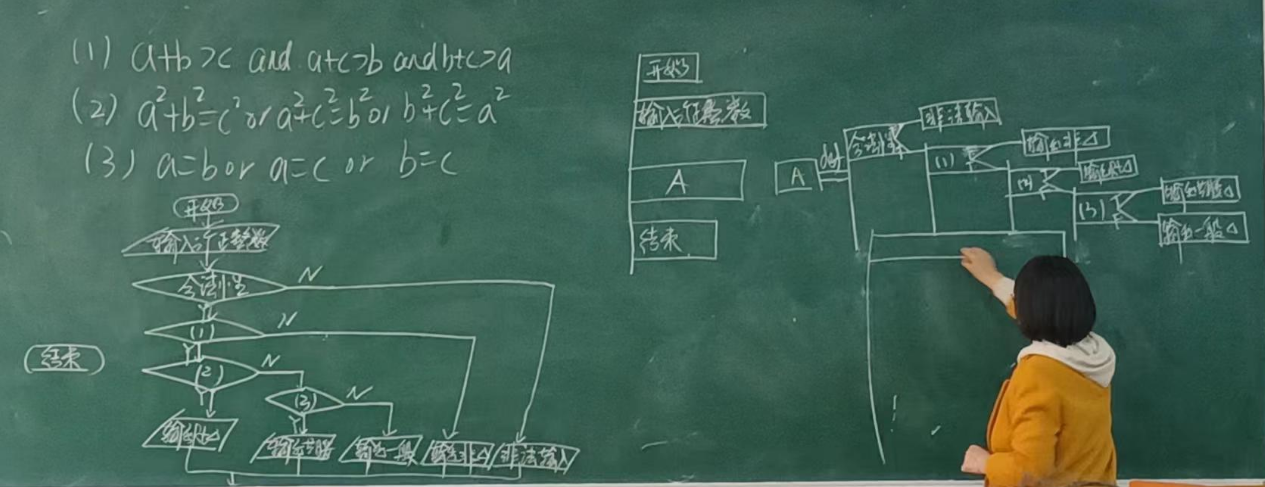 (1) a+b>c and a+c>b and b+c>a
(2) a²+b²=c² or a²+c²=b² or b²+c²=a²
(3) a=b or a=c or b=c
开始
输入3个正整数
合法性
N
Y
(1)
N
Y
(2)
N
Y
(3)
N
Y
结束
输出Rt△
输出等腰
输出一般
输出非△
非法输入
开始
输入3个正整数
A
结束
A
def
合法性
非法输入
(1)
F
输出非△
(2)
F
输出Rt△
(3)
F
输出等腰△
输出一般△